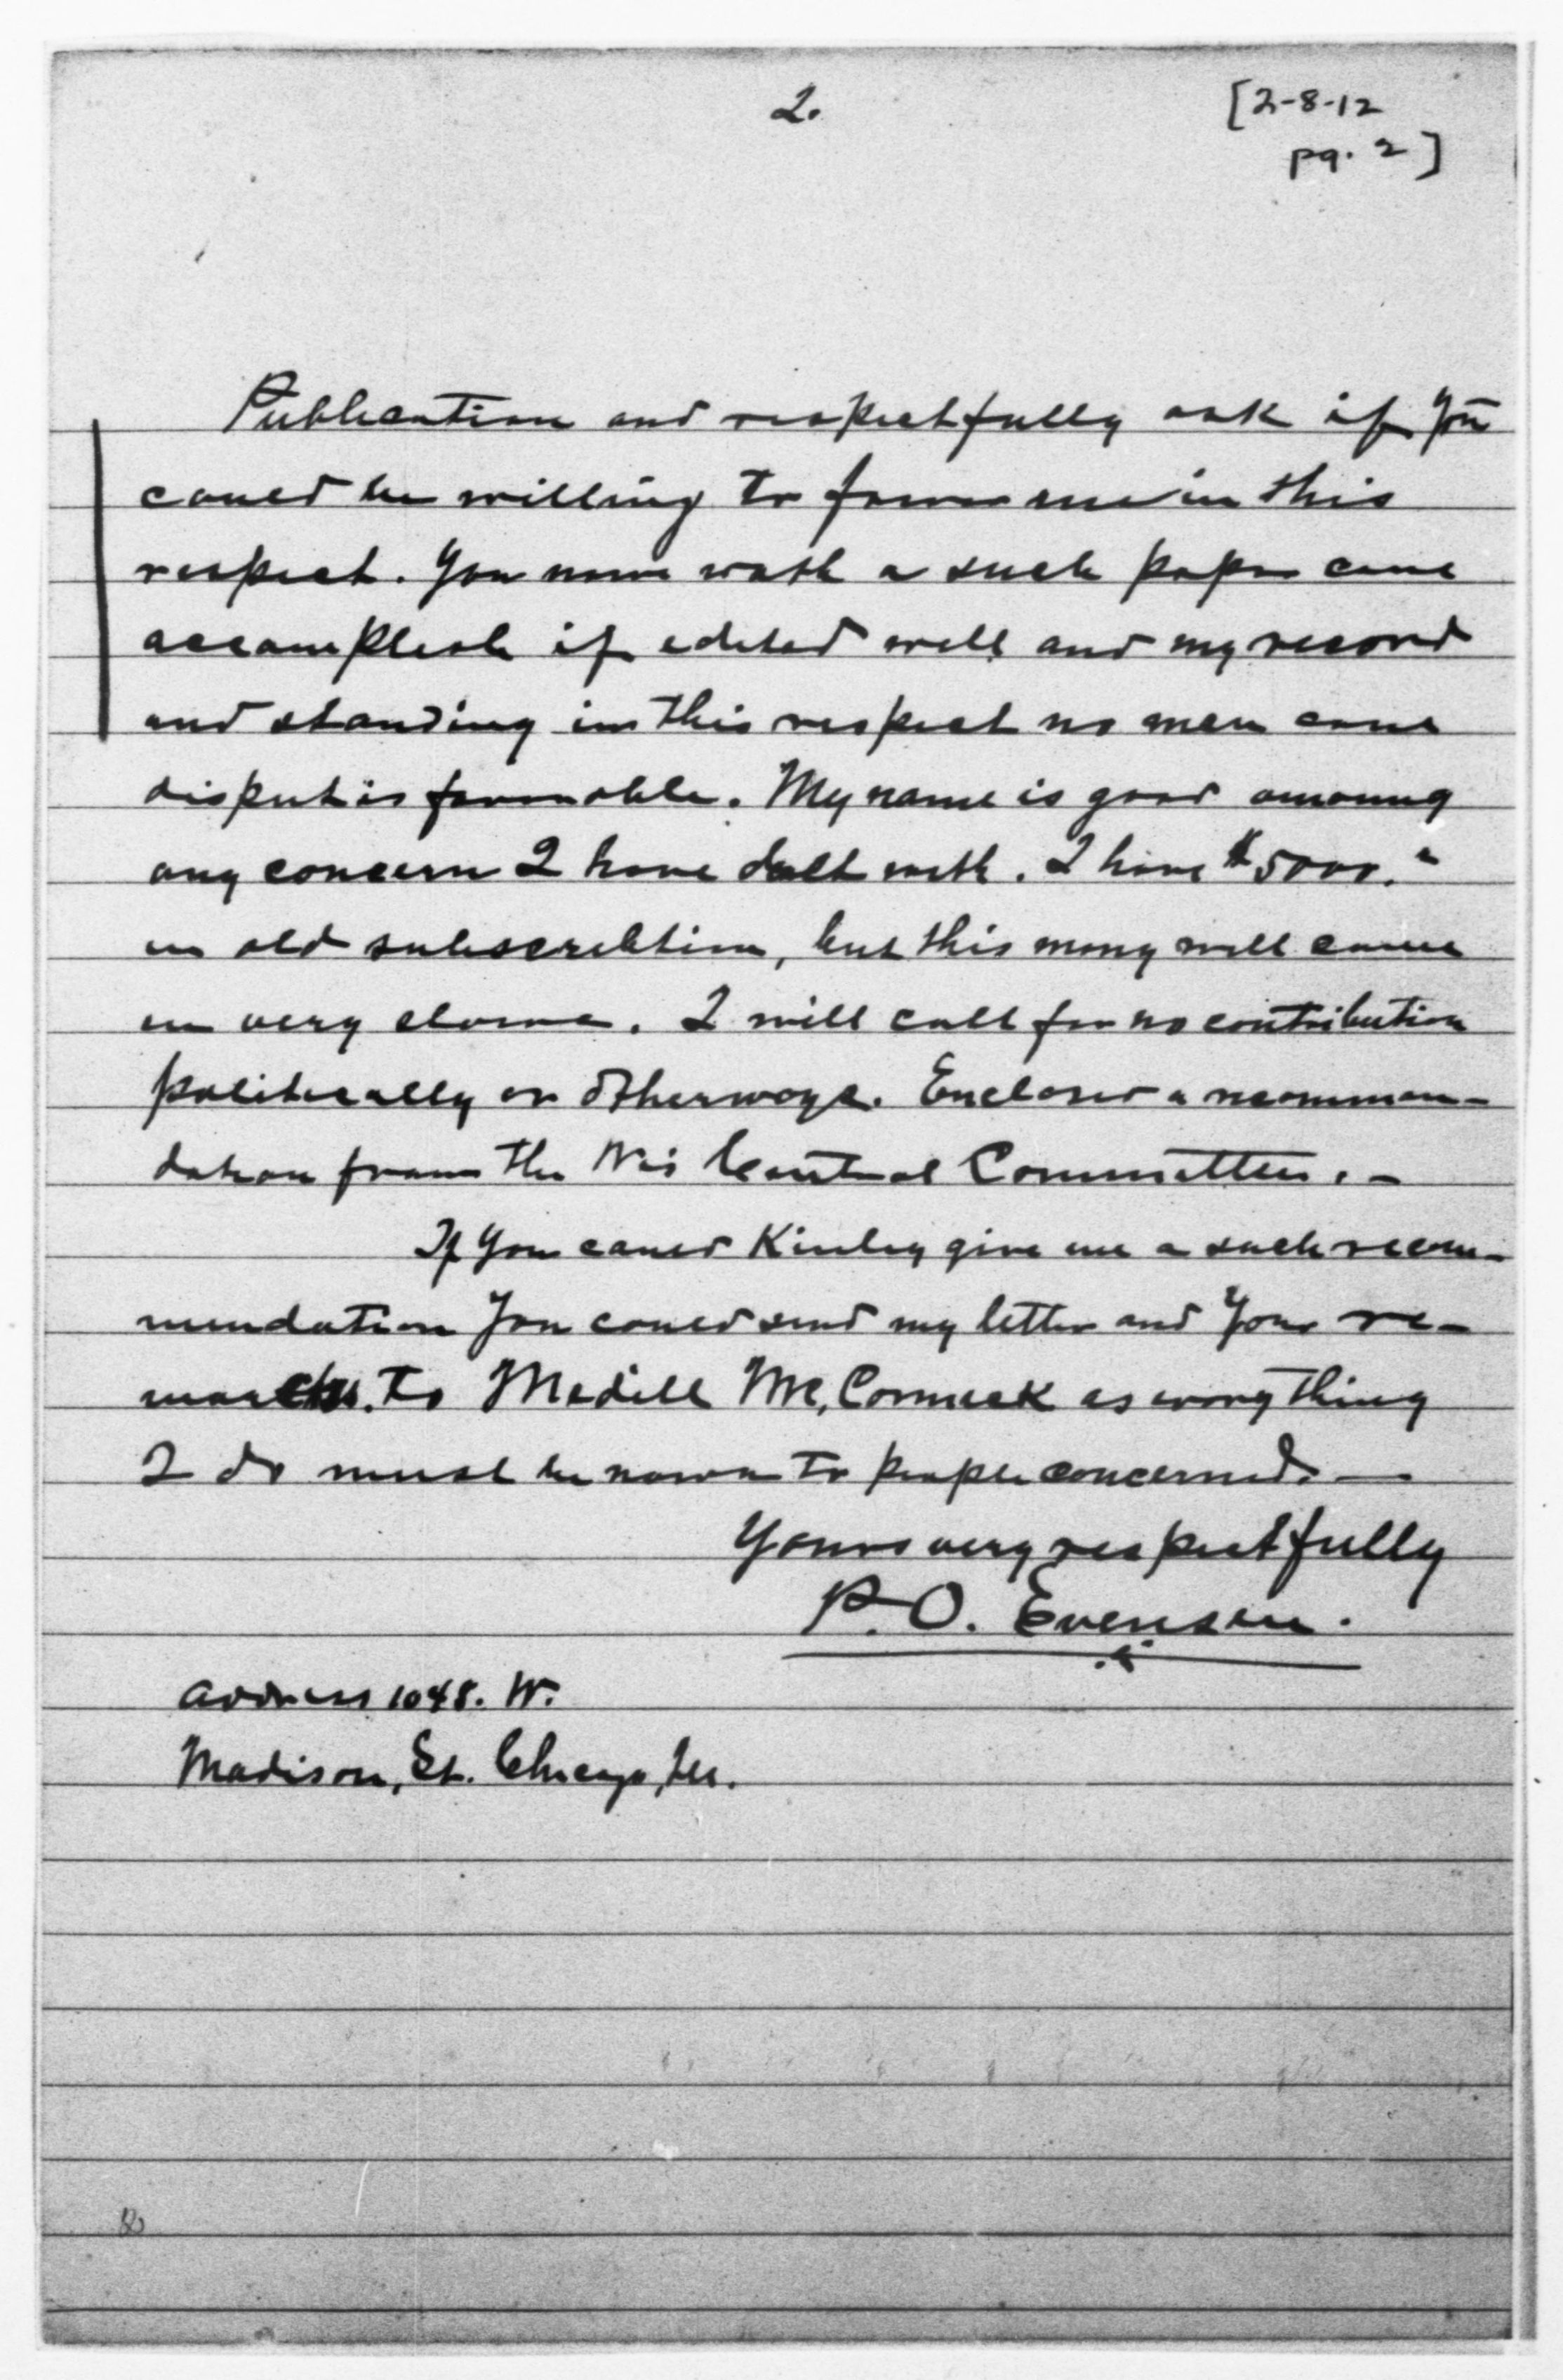 2.
[2-8-12
pg. 2]
Publication and respectfully ask if you
coued be willing to favor me in this
respect. You now wath a such paper cane
accomplish if edited well and my record
and standing in this respect no man cane
disput is favorable. My name is good amoung
any concern I have dealt with. I have $5000.
in old subscribtion, but this mony will come
in very slowe. I will call for no contribution
politically or otherways. Enclosed a recommen-
dation from the Wis Central Committee. -
If you coued kinley give me a such recom-
mendation you coued send my letter and your re-
to Medill Mc, Cormick as every thing
I do must be nown to people concerned. —
Yours very respectfully
P. O. Evensen.
Address 1048. W.
Madison, St. Chicago, Ill.